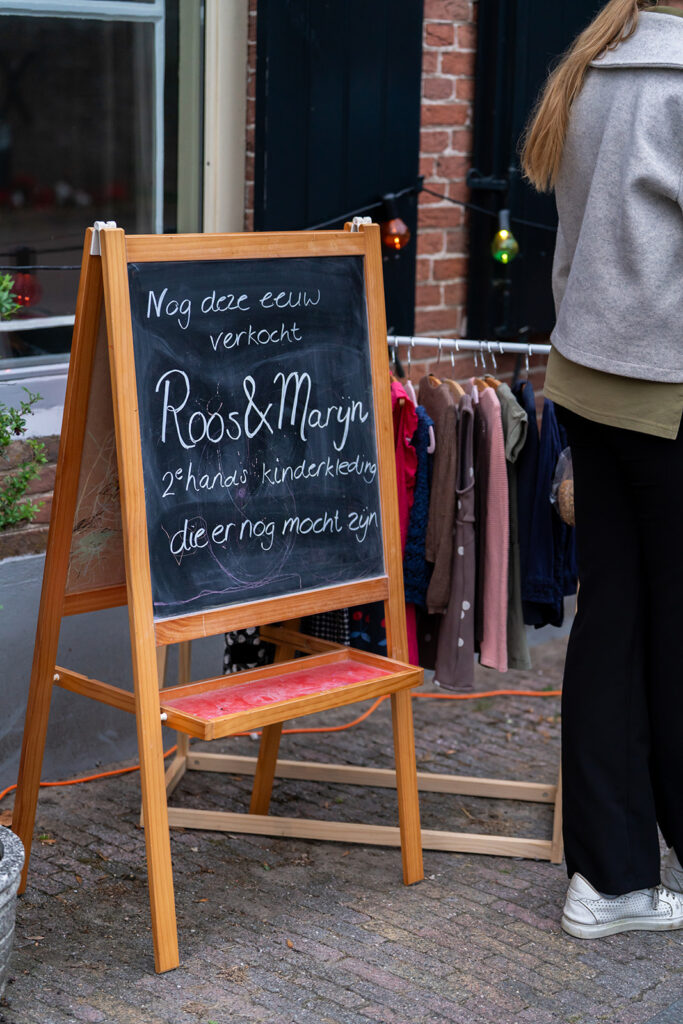 Nog deze eeuw
verkocht
Roos&Marijn
2e hands kinderkleding
die er nog mocht zijn